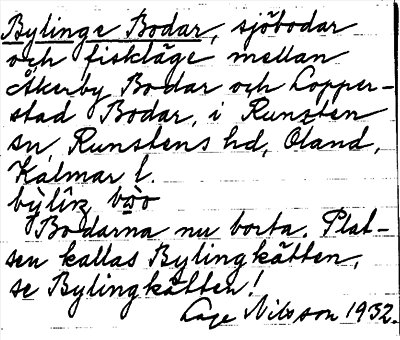 Bylinge Bodar, sjöbodar
och fiskläge mellan
Åkerby Bodar och Lopper-
stad Bodar, i Runsten
sn, Runstens hd, Öland,
Kalmar l.
Bodarna nu borta. Plat-
sen kallas Bylingkätten,
se Bylingkätten!
Nilsson 1932.